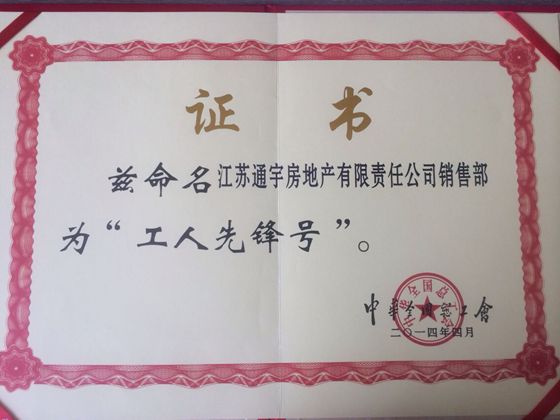 证书
兹命名江苏通宇房地产有限责任公司销售部
为“工人先锋号”。
中华全国总工會
二〇一四年四月
中华全国总工会